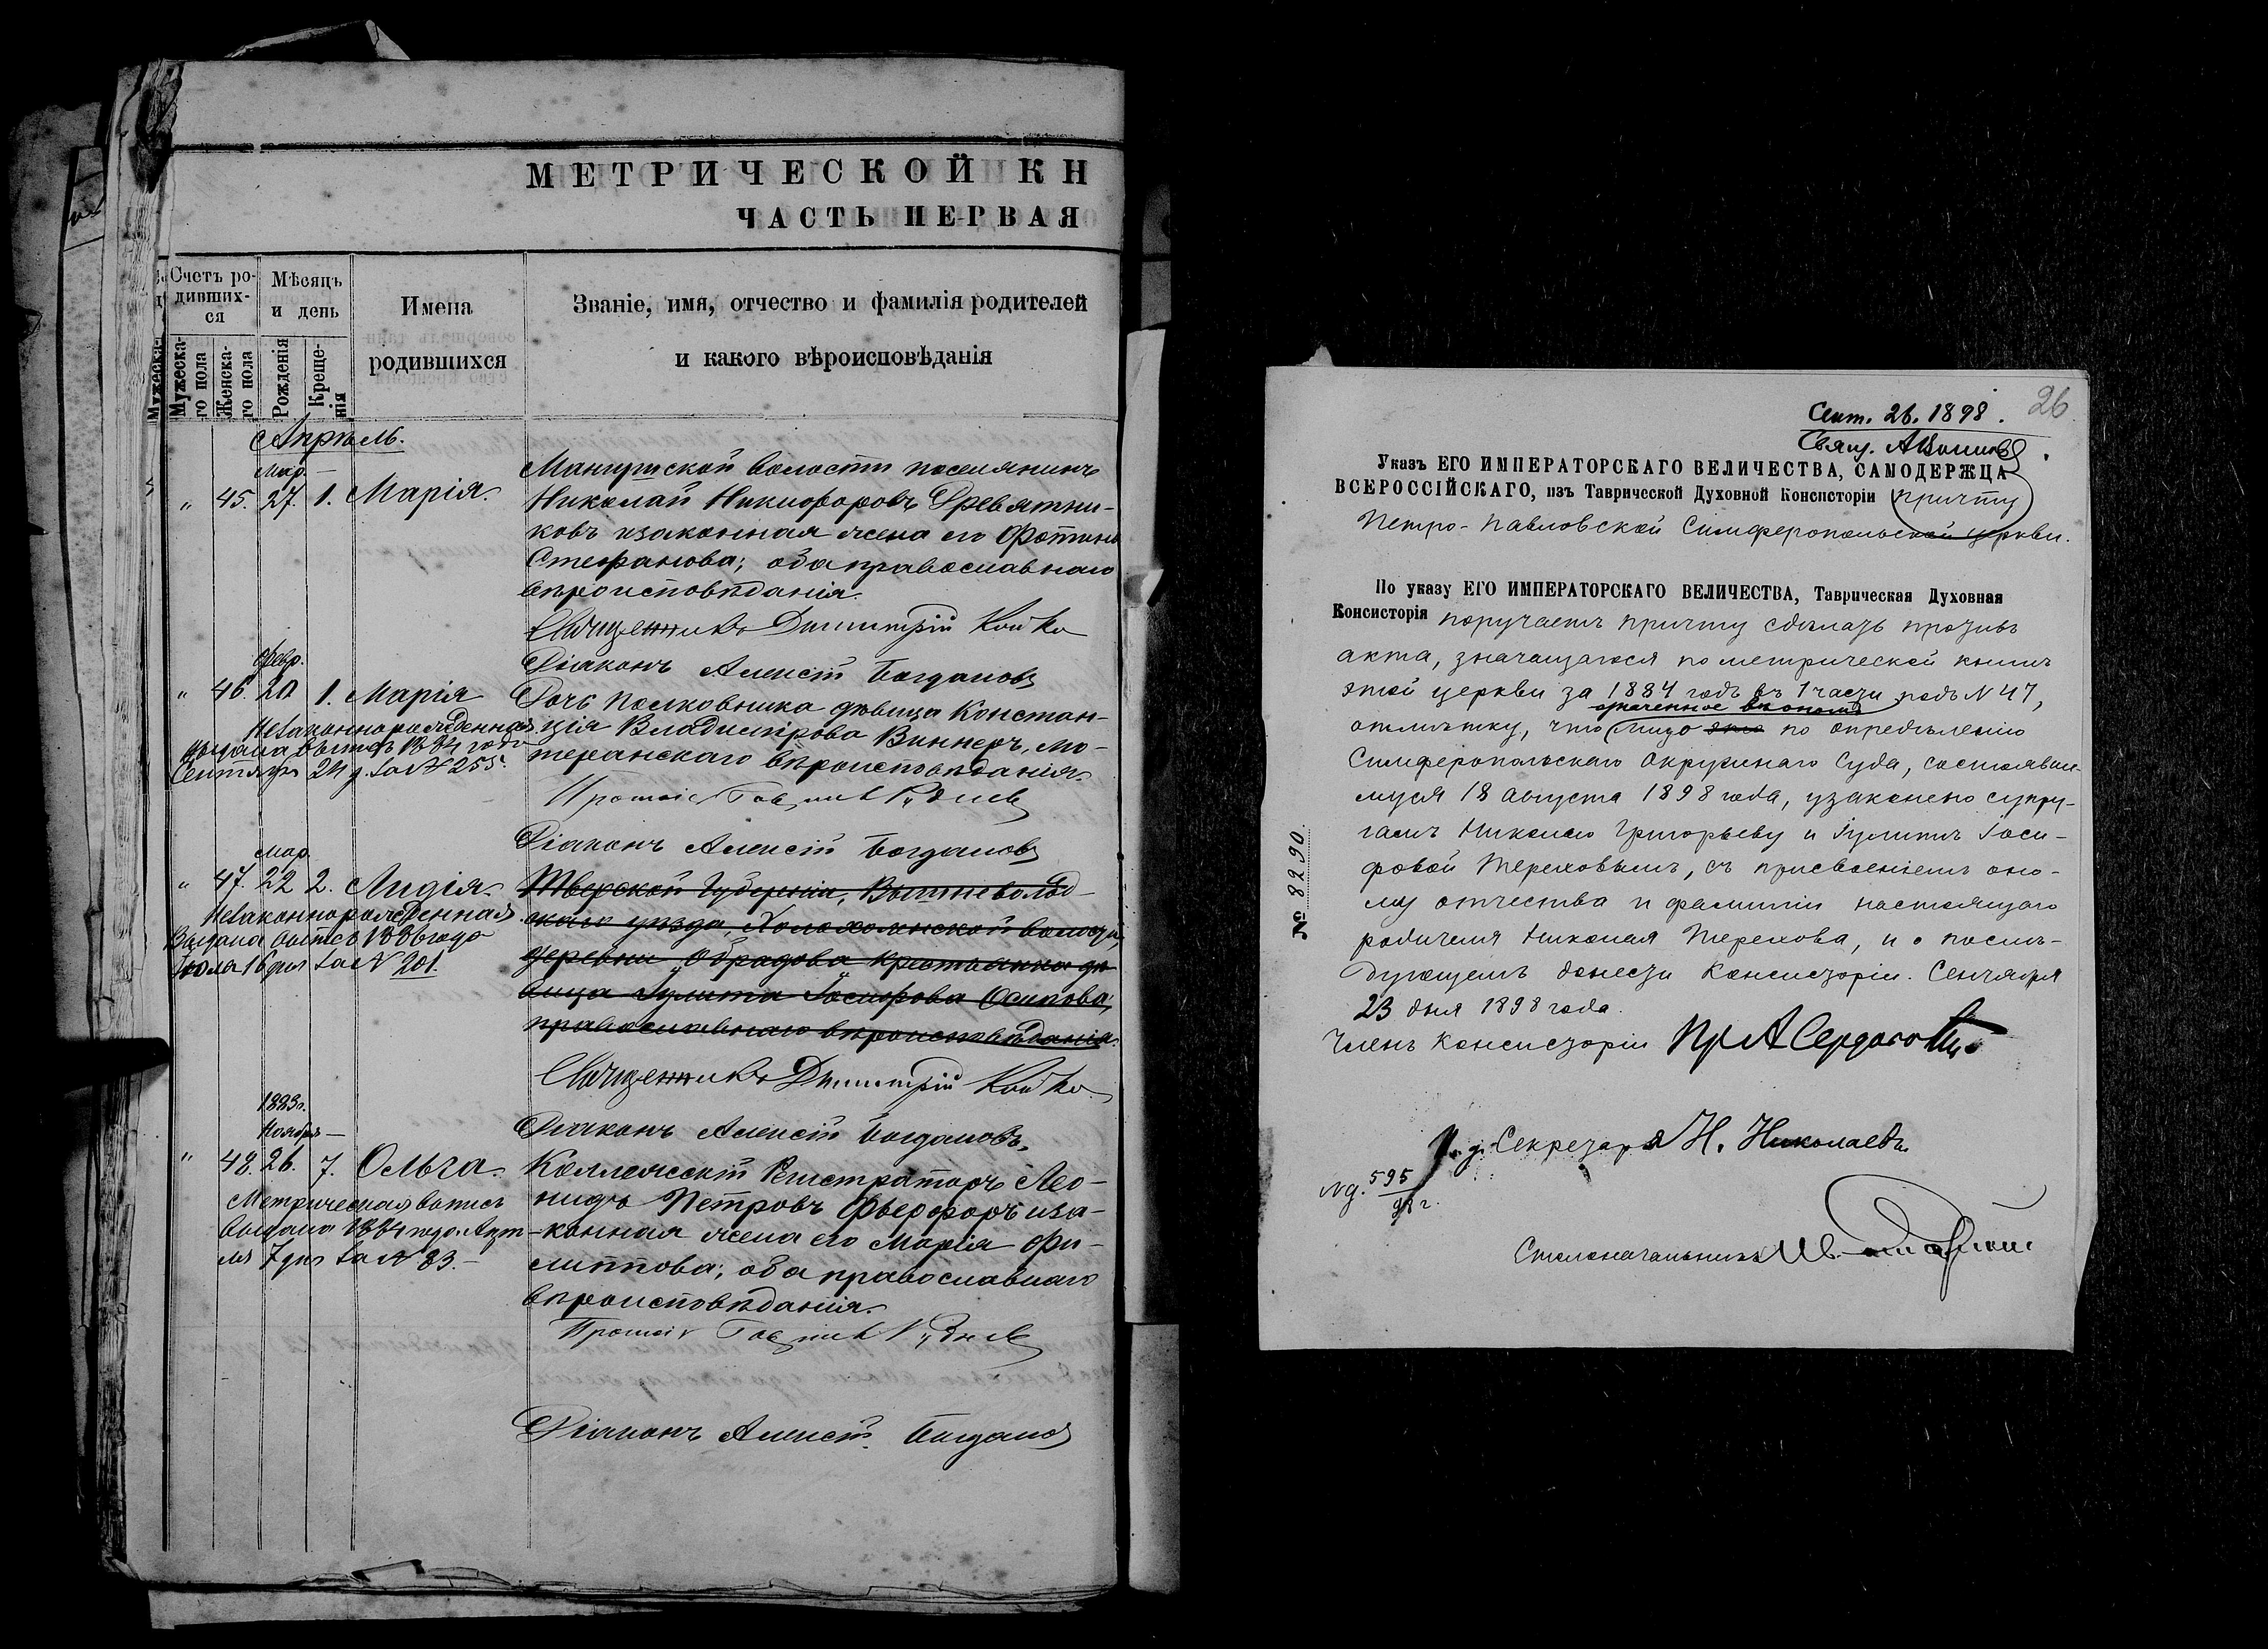 МЕТРИЧЕСКОЙ КН
ЧАСТЬ ПЕРВАЯ
Счетъ ро-
дивших-
ся
Мужеска-
го пола
Женска-
го пола
Мѣсяцъ
и день
Рожденія
Креще-
нія
Имена
родившихся
Званіе, имя, отчество и фамилія родителей
и какого вѣроисповѣданія
Мужеска-
Апрѣль.
Мар.
" 45. 27. 1. Марія.
Мангушской волости поселянинъ
Николай Никифоровъ Древятни-
ковъ изаконная жена его Фотина
Стефанова; оба православнаго
вѣроисповѣданія.
Священникъ Димитрій Койко
Діаконъ Алексій Богдановъ
Февр.
" 46. 20 1. Марія
Незаконнорожденная
выдана выпись 1884 года
Сентября 24 д. за № 255.
Дочь полковника дѣвица Констан-
ція Владимірова Виннеръ, лю-
теранскаго вѣроисповѣданія.
Діаконъ Алексій Богдановъ
Мар.
" 47. 22 2. Лидія.
Незаконнорожденная.
Выдана выпись 1886 года
Іюля 16 дня за № 201.
Тверской Губерніи, Вышневолод-
скаго уѣзда, Холохоленской волости,
деревни „Обрадова" крестьянка дѣ-
вица Іулита Іосифова Осипова;
православнаго вѣроисповѣданія.
Священникъ Димитрій Койко
Діаконъ Алексій Богдановъ.
1883г.
Ноября
" 48. 26. 7. Ольга.
Метрическая выпись
выдана 1884 года Апрѣ-
ля 7 дня за № 83.
Коллежскій Регистраторъ Лео-
нидъ Петровъ Фьерфоръ иза-
конная жена его Марія Фи-
липпова; оба православнаго
вѣроисповѣданія.
Діаконъ Алексій Богдановъ
26
Сент. 26. 1898.
Свящ.
Указъ ЕГО ИМПЕРАТОРСКАГО ВЕЛИЧЕСТВА, САМОДЕРЖЦА
ВСЕРОССІЙСКАГО, изъ Таврической Духовной Консисторіи причту
Петро-Павловской Симферопольской церкви.
По указу ЕГО ИМПЕРАТОРСКАГО ВЕЛИЧЕСТВА, Таврическая Духовная
Консисторія поручаетъ причту сдѣлать противъ
акта, значащагося по метрической книгѣ
этой церкви за 1884 годъ въ 1 части подъ N 47,
означенное въ ономъ
отмѣтку, что лицо это по опредѣленію
Симферопольскаго Окружнаго Суда, состоявше-
муся 18 Августа 1898 года, узаконено супру-
гамъ Николаю Григорьеву и Іулитѣ Іоси-
фовой Тереховымъ, съ присвоеніемъ оно-
му отчества и фамиліи настоящаго
родителя Николая Терехова, и о послѣ-
дующемъ донести Консисторіи. Сентября
23 дня 1898 года.
№ 8290.
Членъ Консисторіи Пр А Сердобольс
И. д. Секретаря Н. Николаевъ
Nд. 595/98 г.
Столоначальникъ